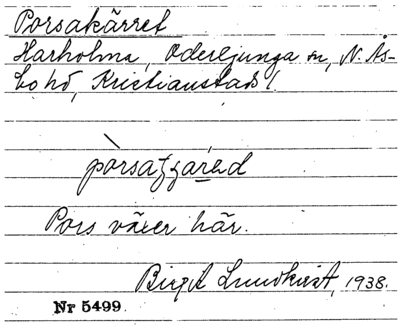 Porsakärret
Harholma, Oderljunga sn, N. Ås-
bo hd, Kristianstads l.
Pors växer här.
Birgit Lundkvist, 1938.
Nr 5499